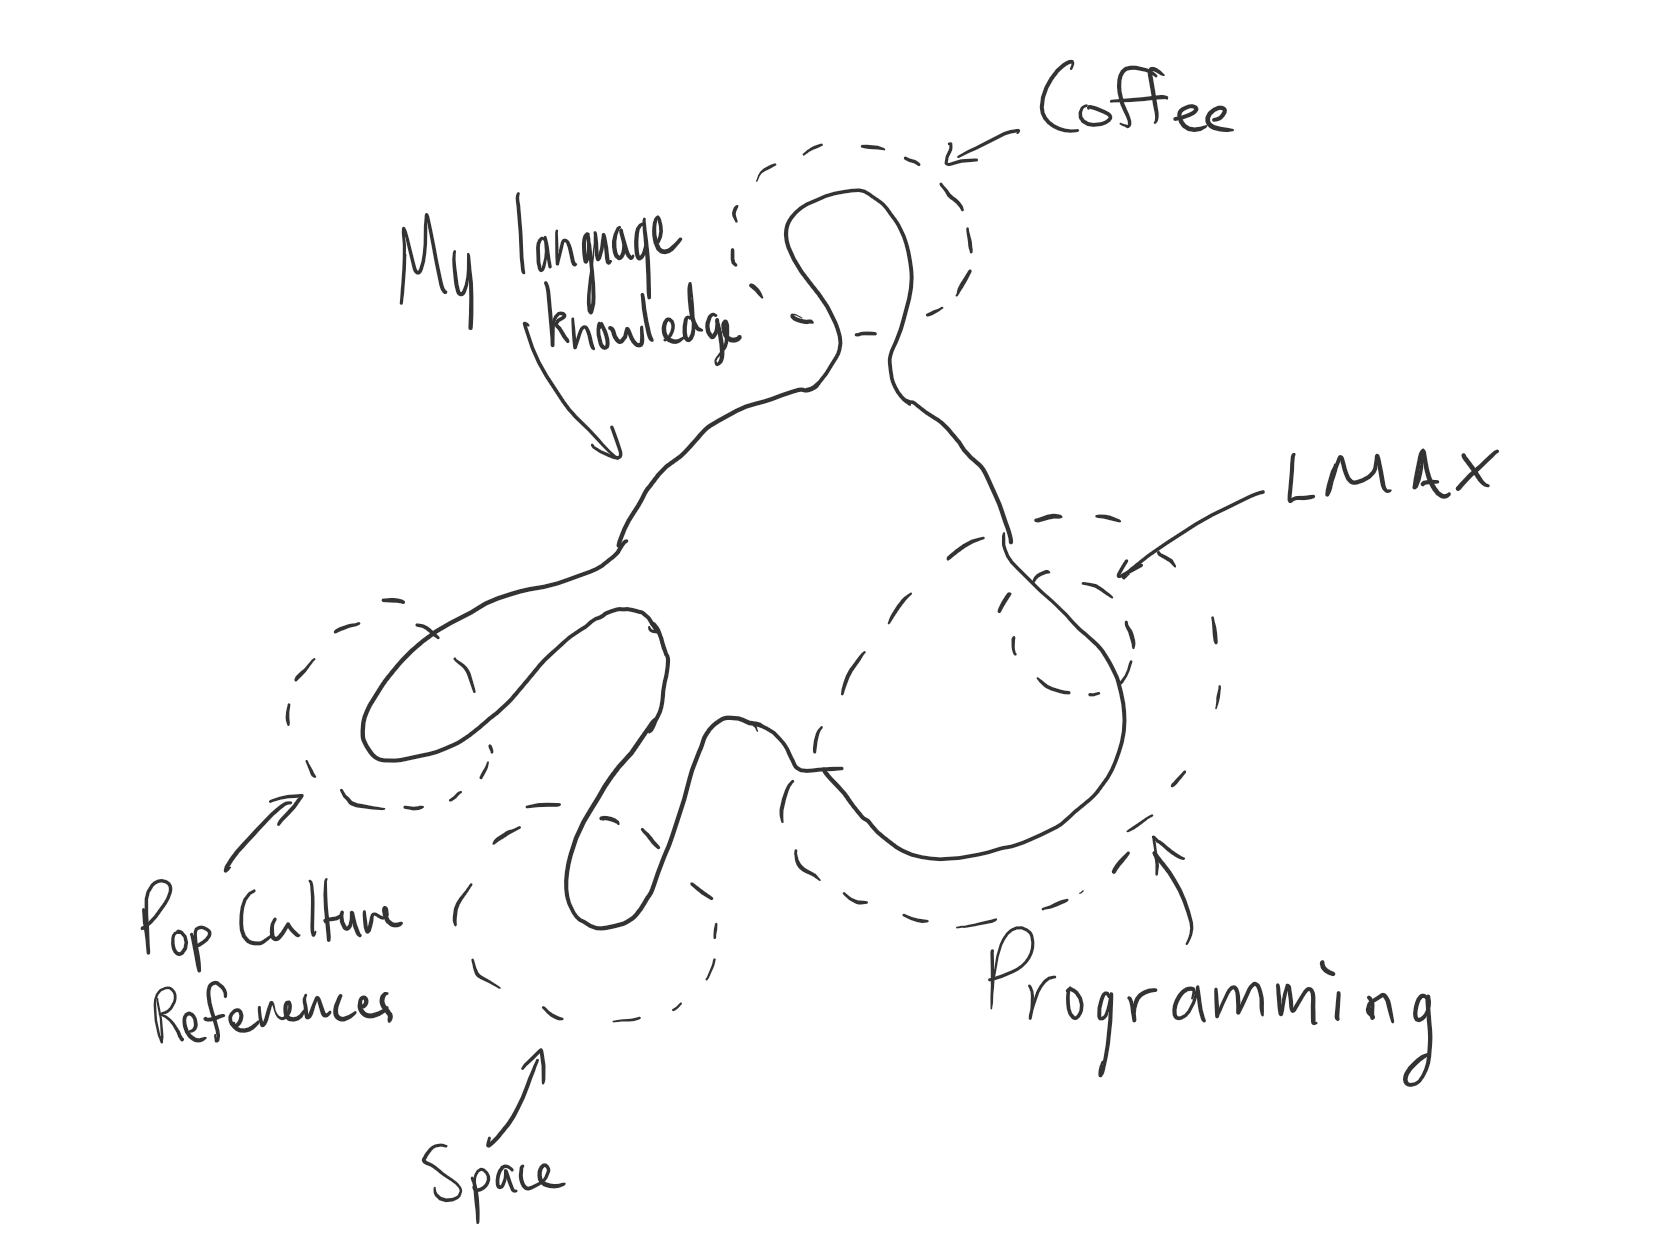 Coffee
My language
knowledge
LMAX
Pop Culture
References
Programming
Space